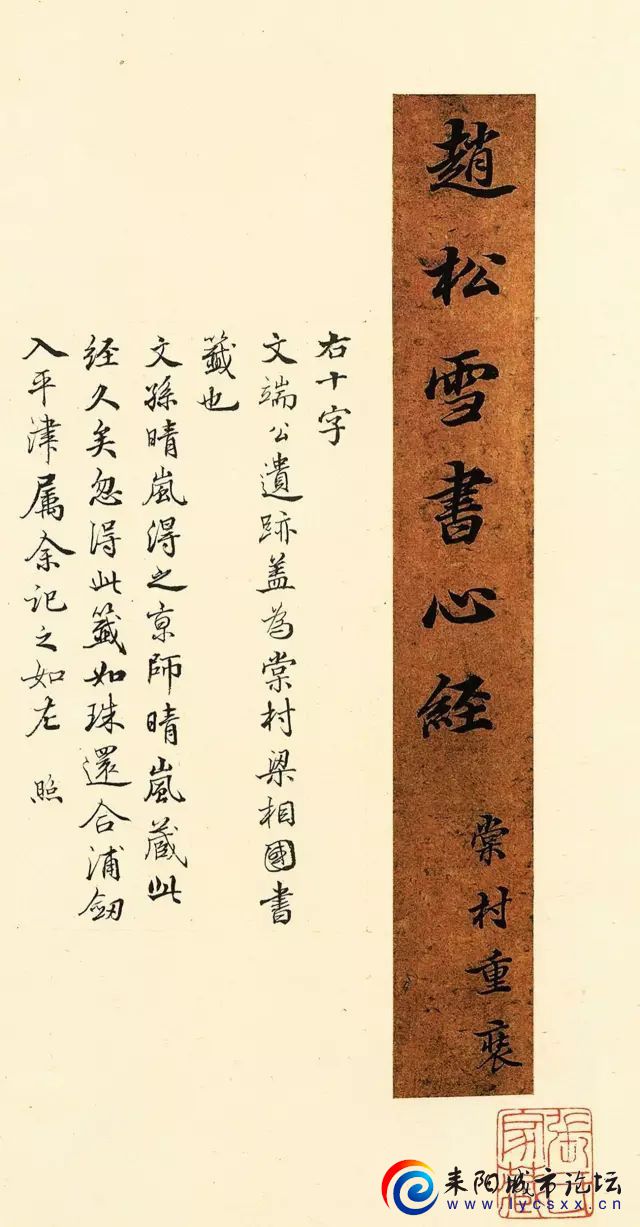 趙松雪書心經
棠村重裝
右十字
文端公遺跡蓋為棠村梁相國書
籤也
文孫晴嵐得之京師晴嵐藏此
经久矣忽得此籤如珠還合浦劔
入平津属余记之如左 照
耒阳城市论坛
www.lycsxx.cn